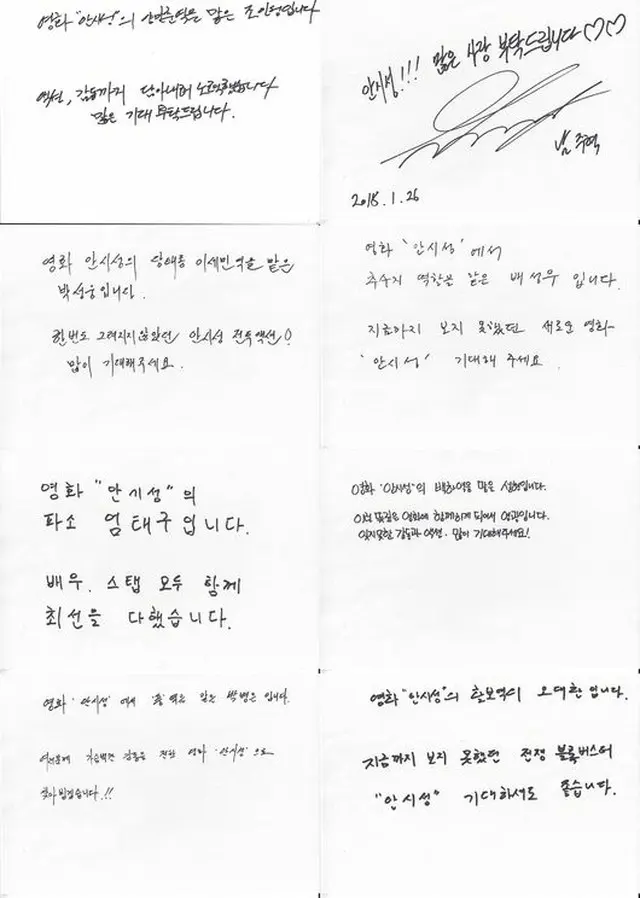 영화 "안시성"의 양만춘역을 맡은 조인성입니다
액션, 감동까지 담아내려 노력했습니다
많은 기대 부탁드립니다.
안시성!!! 많은 사랑 부탁드립니다♡♡
남주혁
2018.1.26
영화 안시성의 당태종 이세민역을 맡은
박성웅입니다.
한번도 그려지지않았던 안시성 전투액션!
많이 기대해주세요.
영화 '안시성'에서
추수지 역할을 맡은 배성우 입니다.
지금까지 보지 못했던 새로운 영화~
'안시성' 기대해 주세요.
영화 "안시성"의
파소 엄태구입니다.
배우, 스탭 모두 함께
최선을 다했습니다.
영화 '안시성'의 백하역을 맡은 설현입니다.
이런 뜻깊은 영화에 함께하게 되어서 영광입니다.
잊지못할 감동과 액션. 많이 기대해주세요!
영화 '안시성' 에서 '풍'역을 맡은 박병은 입니다.
여러분께 가슴벅찬 감동을 전할 영화 '안시성'으로
찾아뵙겠습니다.!!
영화 "안시성"의 활보역의 오대환 입니다.
지금까지 보지 못했던 전쟁 블록버스터
"안시성" 기대하셔도 좋습니다.